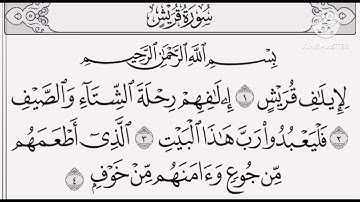 سُورَةُ قُرَيْشٍ
KINEMASTER
بِسْمِ ٱللَّهِ ٱلرَّحْمَٰنِ ٱلرَّحِيمِ
لِإِيلَٰفِ قُرَيْشٍ ١ إِۦلَٰفِهِمْ رِحْلَةَ ٱلشِّتَآءِ وَٱلصَّيْفِ
٢ فَلْيَعْبُدُوا۟ رَبَّ هَٰذَا ٱلْبَيْتِ ٣ ٱلَّذِىٓ أَطْعَمَهُم
مِّن جُوعٍ وَءَامَنَهُم مِّنْ خَوْفٍۭ ٤